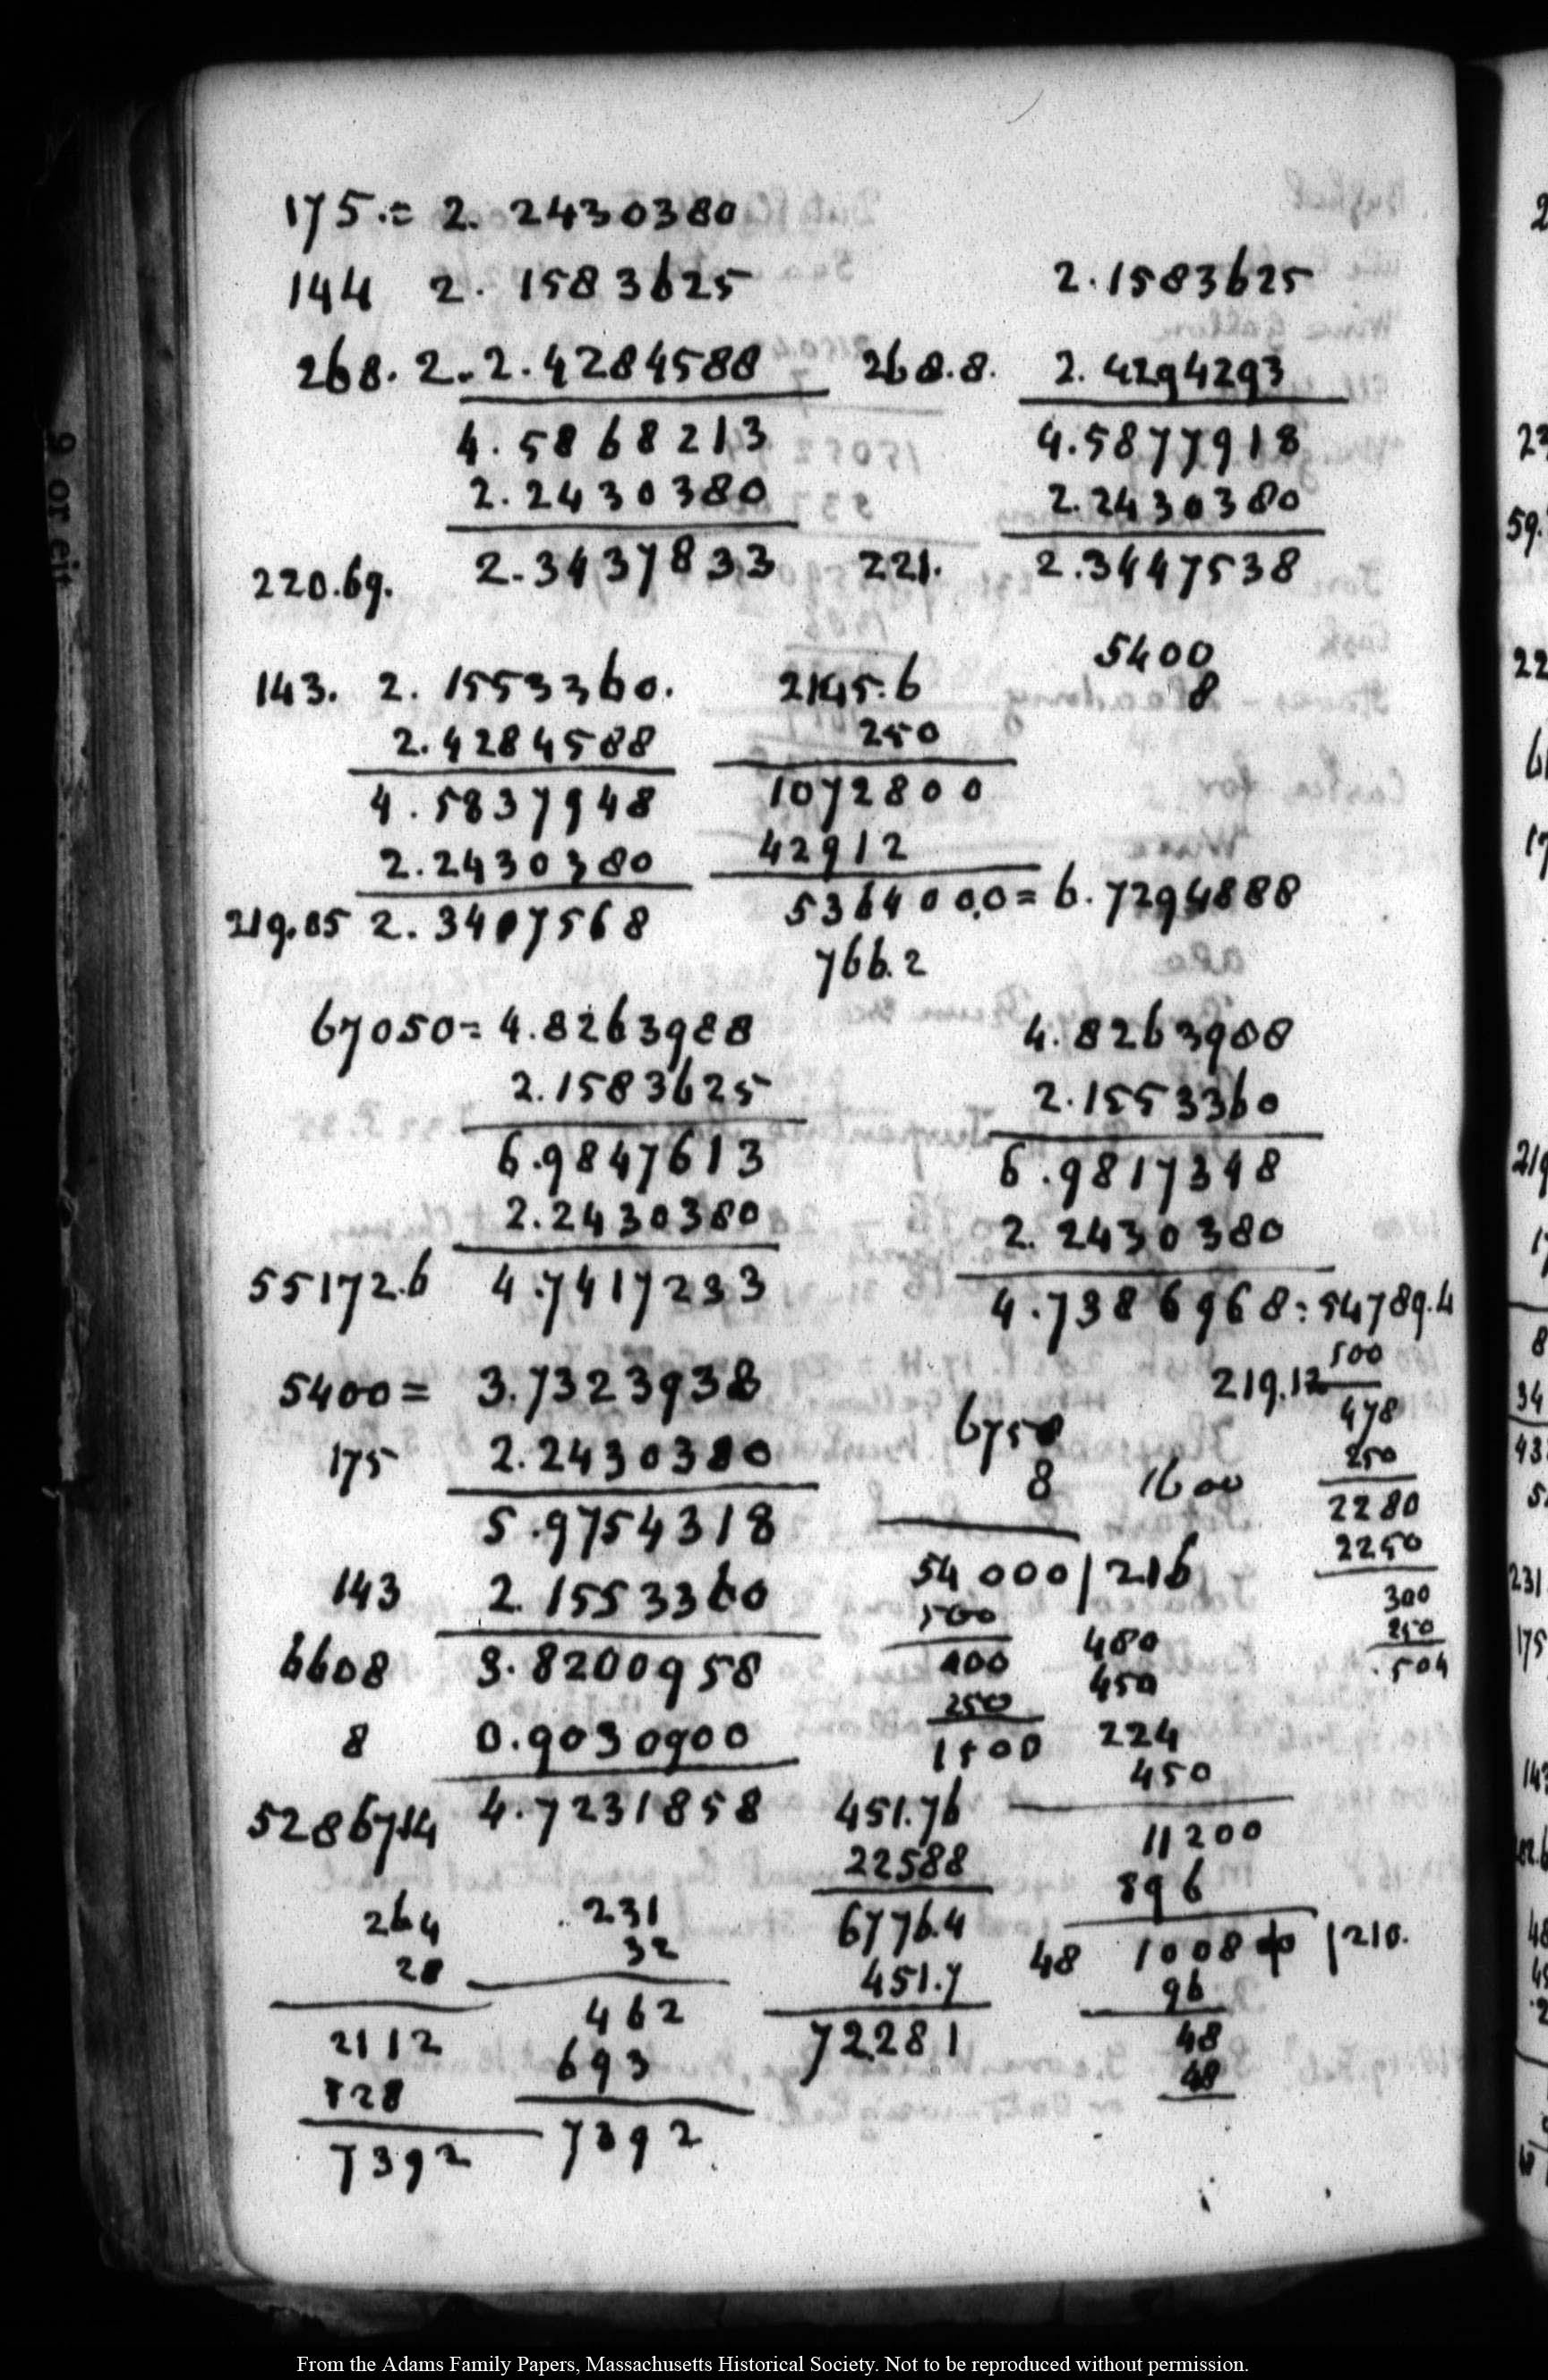 175.= 2. 2430380
144 2. 1583625 2.1583625
268. 2. 2.4284588 268.8. 2. 4294293
4. 5868213 4.5877918
2. 2430380 2.2430380
220.69. 2.3437833 221. 2.3447538
5400
143. 2. 1553360. 2145.6 8
2.4284588 250
4.5837948 1072800
2.2430380 42912
219.85 2.3407568 5364000,0 = 6.7294888
766.2
67050 = 4.8263988 4.8263988
2.1583625 2.1553360
6.9847613 6.9817348
2.2430380 2.2430380
55172.6 4.7417233 4.7386968 = 54789.4
500
5400 = 3.7323938 219.12
6750 478
175 2.2430380 250
8 1600
5.9754318 2280
2250
54000 | 216
143 2. 1553360 500 300
480 250
6608 3.8200958 400 504
450
250
8 0.9030900 1500 224
450
52867.14 4.7231858 451.76
11200
22588
264 .231 896
6776.4
28 32 48 10080 | 210.
451.7 96
2112 462 72281 48
528 693 48
7392 7392
9 or eit
From the Adams Family Papers, Massachusetts Historical Society. Not to be reproduced without permission.